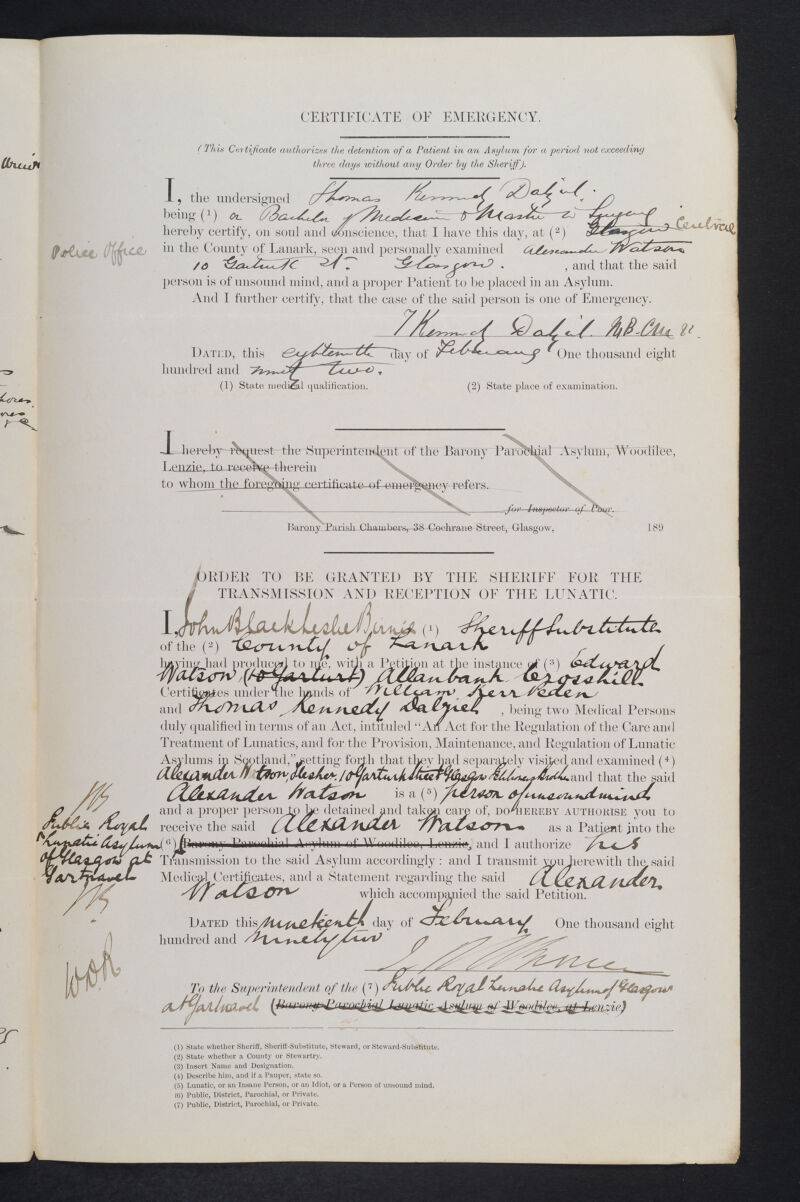 CERTIFICATE OF EMERGENCY.
(This Certificate authorizes the detention of a Patient in an Asylum for a period not exceeding
three days without any Order by the Sheriff).
I, the undersigned Thomas Kennedy Dalziel.
being (1) a Bachelor of Medicine & Master in Surgery
hereby certify, on soul and conscience, that I have this day, at (2) Glasgow Central
Police Office
in the County of Lanark, seen and personally examined Alexander Watson
10 Garturk St. Glasgow. , and that the said
person is of unsound mind, and a proper Patient to be placed in an Asylum.
And I further certify, that the case of the said person is one of Emergency.
T Kennedy Dalziel. M.B. C.M.
DATED, this eighteenth day of February One thousand eight
hundred and ninety two.
(1) State medical qualification. (2) State place of examination.
I hereby request the Superintendent of the Barony Parochial Asylum, Woodilee,
Lenzie, to receive therein
to whom the foregoing certificate of emergency refers.
for Inspector of Poor.
Barony Parish Chambers, 38 Cochrane Street, Glasgow, 189
ORDER TO BE GRANTED BY THE SHERIFF FOR THE
TRANSMISSION AND RECEPTION OF THE LUNATIC.
I, John Black Leslie Birnie (1) Sheriff Substitute
of the (2) County of Lanark
having had produced to me, with a Petition at the instance of (3) Edward
Watson, (10 Garturt) Allanbank Crosshill
Certificates under the hands of William Kerr
and Thomas Kennedy Dalziel , being two Medical Persons
duly qualified in terms of an Act, intituled "An Act for the Regulation of the Care and
Treatment of Lunatics, and for the Provision, Maintenance, and Regulation of Lunatic
Asylums in Scotland," setting forth that they had separately visited and examined (4)
Alexander Watson, Flesher, 10 Garturk Street Glasgow and that the said
Alexander Watson is a (5) person of unsound mind
and a proper person to be detained and taken care of, DO HEREBY AUTHORISE you to
receive the said Alexander Watson as a Patient into the
(6) (Barony Parochial Asylum of Woodilee, Lenzie, and I authorize his
Transmission to the said Asylum accordingly: and I transmit you herewith the said
Medical Certificates, and a Statement regarding the said Alexander
Watson which accompanied the said Petition.
Public Royal
Lunatic Asylum
of Glasgow at
Gartnavel
DATED this nineteenth day of February One thousand eight
hundred and ninety two
To the Superintendent of the (7) Public Royal Lunatic Asylum of Glasgow
at Gartnavel (Barony Parochial Lunatic Asylum of Woodilee, at Lenzie)
(1) State whether Sheriff, Sheriff-Substitute, Steward, or Steward-Substitute.
(2) State whether a County or Stewartry.
(3) Insert Name and Designation.
(4) Describe him, and if a Pauper, state so.
(5) Lunatic, or an Insane Person, or an Idiot, or a Person of unsound mind.
(6) Public, District, Parochial, or Private.
(7) Public, District, Parochial, or Private.